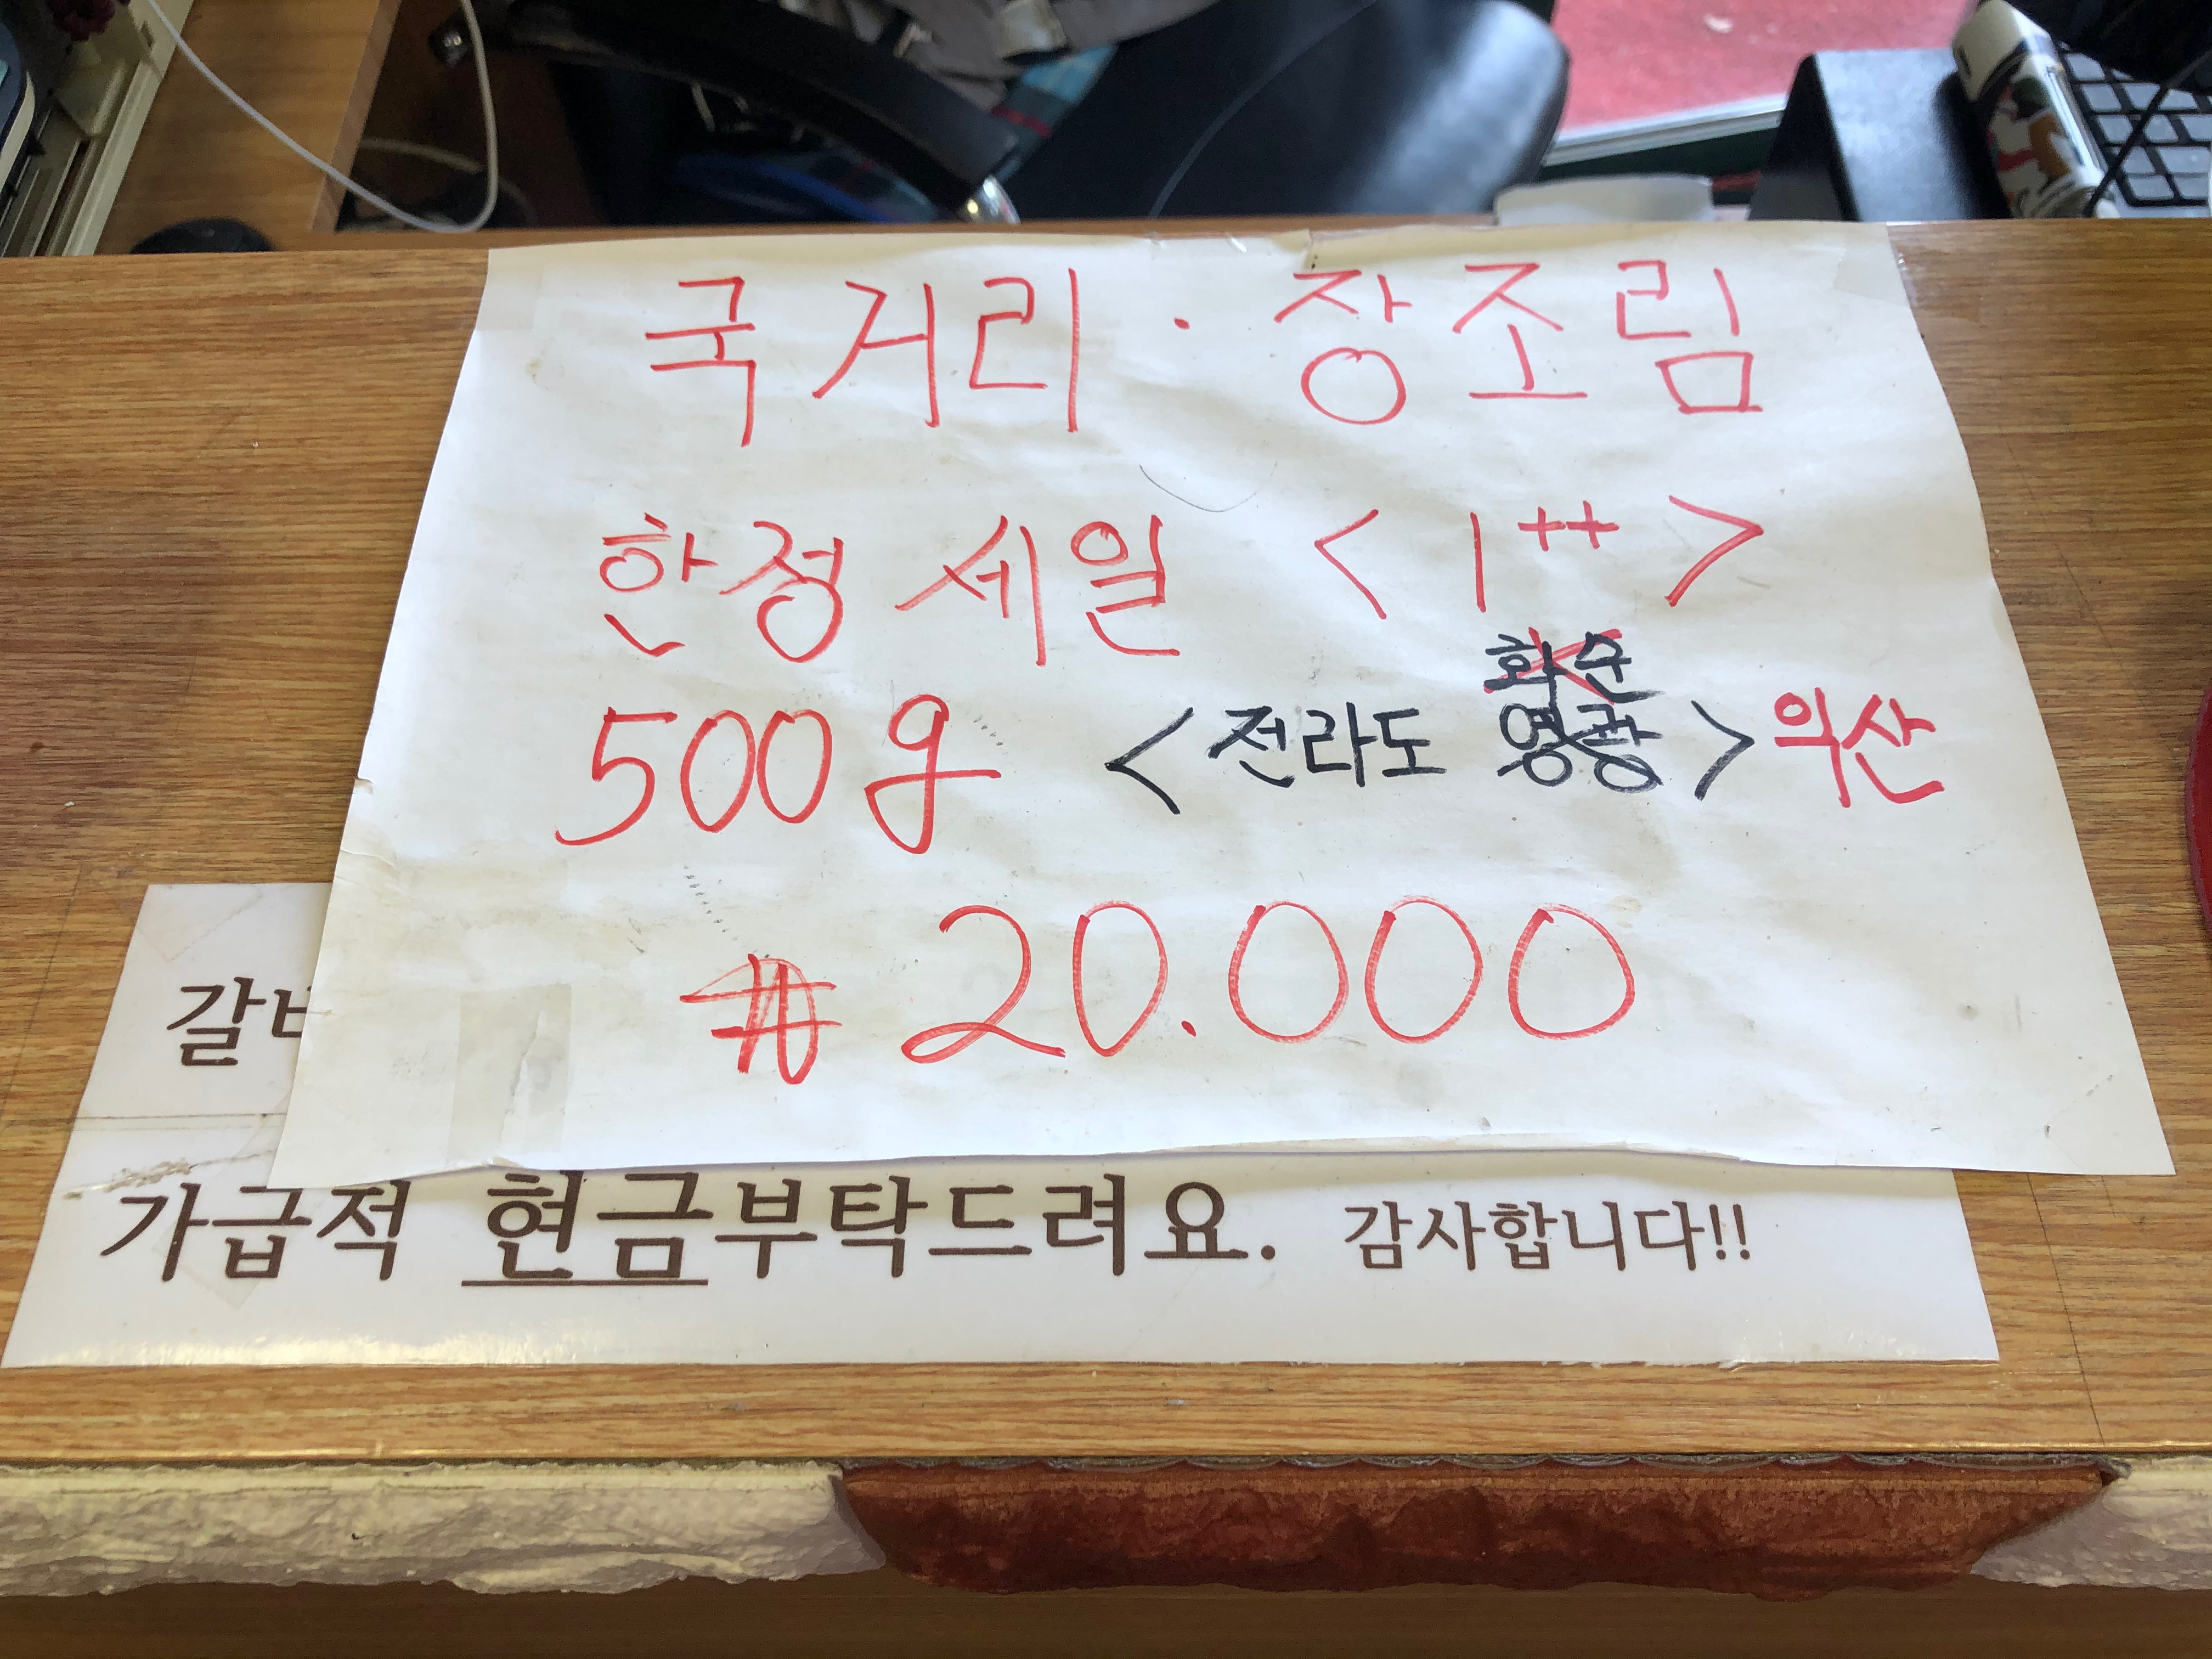 국거리 · 장조림
한정 세일 <1++>
화순
500g <전라도 영광> 익산
₩ 20.000
갈비
가급적 현금부탁드려요. 감사합니다!!